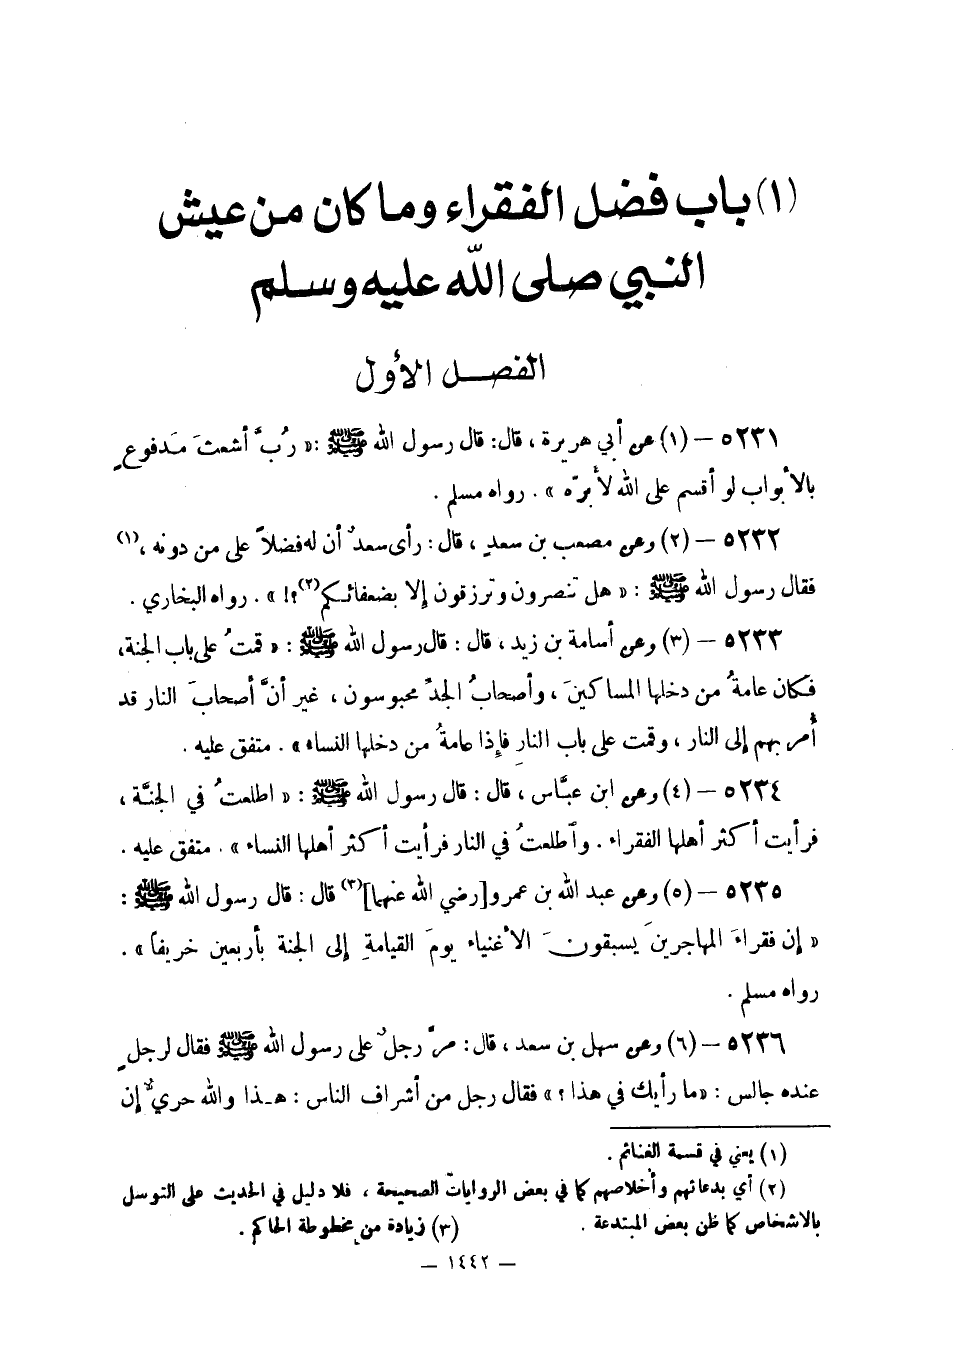 (١) باب فضل الفقراء وما كان من عيش
النبي صلى الله عليه وسلم
الفصل الأول
٥٢٣١ – (١) عن أبي هريرة ، قال: قال رسول الله ﷺ :« رُبَّ أشعثَ مَدفوعٍ
بالأبواب لو أقسم على الله لأبرَّه » . رواه مسلم .
٥٢٣٢ – (٢) وعن مصعب بن سعدٍ ، قال : رأى سعدٌ أن له فضلاً على من دونه ،(١)
فقال رسول الله ﷺ : « هل تنصرون وترزقون إلا بضعفائكم(٢)؟! » . رواه البخاري .
٥٢٣٣ – (٣) وعن أسامة بن زيد ، قال : قال رسول الله ﷺ : « قمتُ على باب الجنة،
فكان عامةُ من دخلها المساكينَ ، وأصحابُ الجدِّ محبوسون ، غير أنَّ أصحابَ النار قد
أُمر بهم إلى النار ، وقمت على باب النارِ فإذا عامةُ من دخلها النساء » . متفق عليه .
٥٢٣٤ – (٤) وعن ابن عبَّاس ، قال : قال رسول الله ﷺ : « اطلعتُ في الجنَّة ،
فرأيت أكثر أهلها الفقراء . واطلعتُ في النار فرأيت أكثر أهلها النساء » . متفق عليه .
٥٢٣٥ – (٥) وعن عبد الله بن عمرو[رضي الله عنهما](٣) قال : قال رسول الله ﷺ :
« إن فقراءَ المهاجرينَ يسبقونَ الأغنياء يومَ القيامةِ إلى الجنة بأربعين خريفاً » .
رواه مسلم .
٥٢٣٦ – (٦) وعن سهل بن سعد ، قال: مرَّ رجلٌ على رسول الله ﷺ فقال لرجلٍ
عنده جالس : «ما رأيك في هذا ؟ » فقال رجل من أشراف الناس : هـذا والله حريٌّ إن
(١) يعني في قسمة الغنائم .
(٢) أي بدعائهم وأخلاصهم كما في بعض الروايات الصحيحة ، فلا دليل في الحديث على التوسل
بالاشخاص كما ظن بعض المبتدعة . (٣) زيادة من مخطوطة الحاكم .
– ١٤٤٢ –